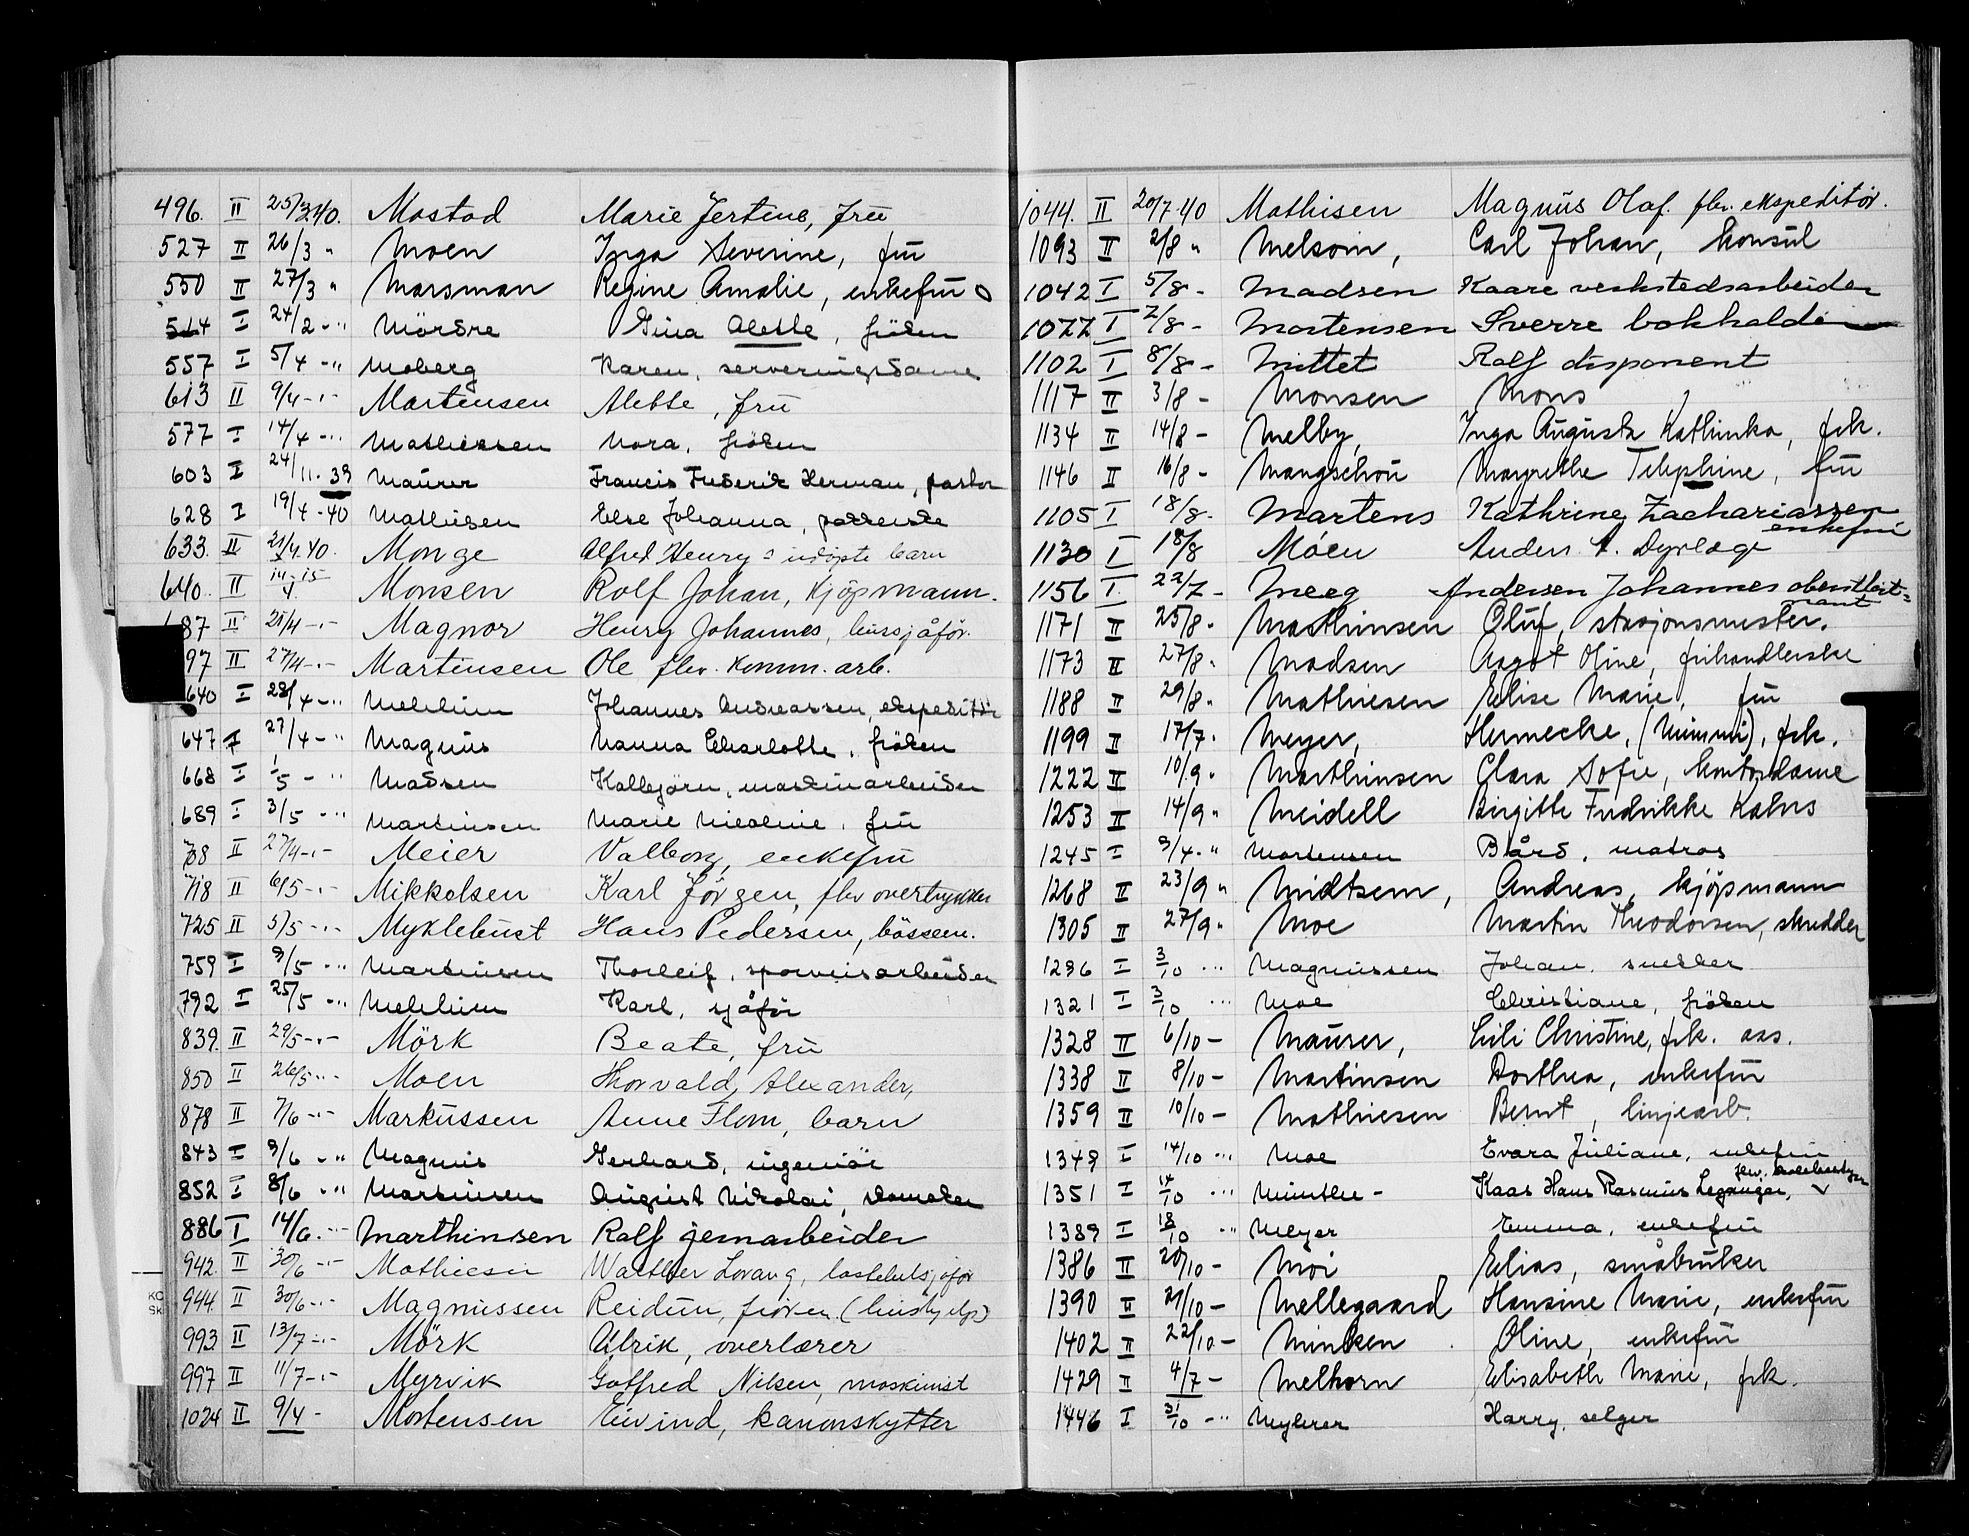 496. II 25/3 40. Mostad Marie Jertine, frü
527 II 26/3 " Moen Inga Severine, frü
550 II 27/3 " Morsman Regine Amalie, enkefrü
514 I 24/2 -" Mördre Gina Alette, fröken
557 I 5/4 -" Moberg Karen, serveringsdame
613 II 9/4 -"- Martensen Alette, frü
577 I 14/4 -" Mathiesen Nora, fröken
603 I 24/11. 39 Maürer Francis Frederik Herman, pastor
628 I 19/4 -40 Mathisen Else Johanna,
633. II 21/4.40. Monge Alfred Henry's udöpte barn
640. II 14-15/4. Monsen Rolf Johan, kjöpmann.
687 II 25/4 -"- Magnor Henry Johannes, bussjåför.
97 II 27/4 -"- Martensen Ole flev. komm. arb.
640 I 28/4 -" Mehlüm Johannes Andreassen, ekspeditör
647 I 27/4 -" Magnüs Nanna Charlotte, fröken
668 I 1/5 -" Madsen Kolbjörn, maskinarbeider
689 I 3/5 -" Martinsen Marie Nicoline, frü
708 II 27/4 -"- Meier Valborg, enkefrü
718 II 6/5 -"- Mikkelsen Karl Jörgen, flev overtrykker
725 II 5/5 -"- Myklebüst Hans Pedersen, bösseem.
759 I 9/5 -" Martinsen Thorleif, sporveisarbeider
792 I 25/5 -" Mehlüm Karl, sjåför
839. II 29/5 -"- Mörk Beate, frü
850 II 26/5 -"- Moen Thorvald Alexander,
878 II 7/6 -"- Markussen Anne Flom, barn
843 I 9/6 -" Magnüs Gerhard, ingeniör
852 I 8/6 -" Martinsen Aügüst Nikolai,
886 I 14/6. -" Marthinsen Ralf jernarbeider
942. II 30/6 -"- Mathiesen Walther Lorang, lastebilsjåför
944. II 30/6 -"- Magnüssen Reidün, fröken (hüsbyelgs)
993 II 13/7 -"- Mörk Ulrik, overlærer
997 II 11/7 -"- Myrvik Gotfred Nilsen, maskinist
1024 II 9/4 - Mortensen Eivind, kanonskytter
1044. II 20/7 40 Mathisen Magnüs Olaf. flv. ekspeditör.
1093 II 2/8 " Melsom, Carl Johan, konsül
1042 I 5/8 - Madsen Kaare verkstedsarbeider
1077 I 7/8 - Mortensen Sverre bokholder
1102 I 8/8 - Mittet Ralf disponent
1117 II 3/8 - Monsen Mons
1134 II 14/8 - Melby, Inga Aügüsta Kathinka, frk.
1146 II 16/8 - Mangschou Margrethe Telephine, frü
1105 I 18/8 - Martens Kathrine Zachariassen
enkefrü
1130 I 18/8 Móen Anders A. Dyrlæge
1156 I. 22/7 - Meeg Andersen Johannes oberstlöit=
nant
1171 II 25/8 " Mathinsen Olüf, stasjonsmester.
1173 II 27/8 " Madsen Aagot Oline, frihandlerske
1188 II 29/8 " Mathiesen Elise Marie, frü
1199 II 17/7 " Meyer, Hermecke, (Mimmi), frk.
1222 II 10/9 " Marthinsen Clara Sofie, kontordame
1253 II 14/9 " Meidell Birgitte Fredrikke Kahrs
1245 I 9/4 -" Mortensen Bård, matros
1268 II 23/9 " Midtsem, Andreas, kjöpmann
1305 II 27/9 " Moe Martin Theodorsen, skredder
1296 I 3/10 -" Magnüssen Johan, snekker
1321 I 3/10 -" Moe Christiane, fröken
1328 II 6/10 - Maürer, Lili Christine, frk. ass.
1338 II 8/10 - Martinsen Dorthea, enkefrü
1359 II 10/10 - Mathiesen Bernt, linjearb.
1349 I 14/10 -" Moe Evara Jüliane, enkefrü
1351 I 14/10 -" Münthe - Kaas Hans Rasmüs Leganger, flv.
1389 I 18/10 -" Meyer Emma, enkefrü
1386 II 20/10 - Moi Elias, småbrüker
1390 II 21/10 - Mellegaard Hansine Marie, enkefrü
1402 II 22/10 - Minken Oline, enkefrü
1429 II 4/7 - Melhorn Elisabeth Marie, frk.
1446 I 31/10 -" Myhrer Harry, selger